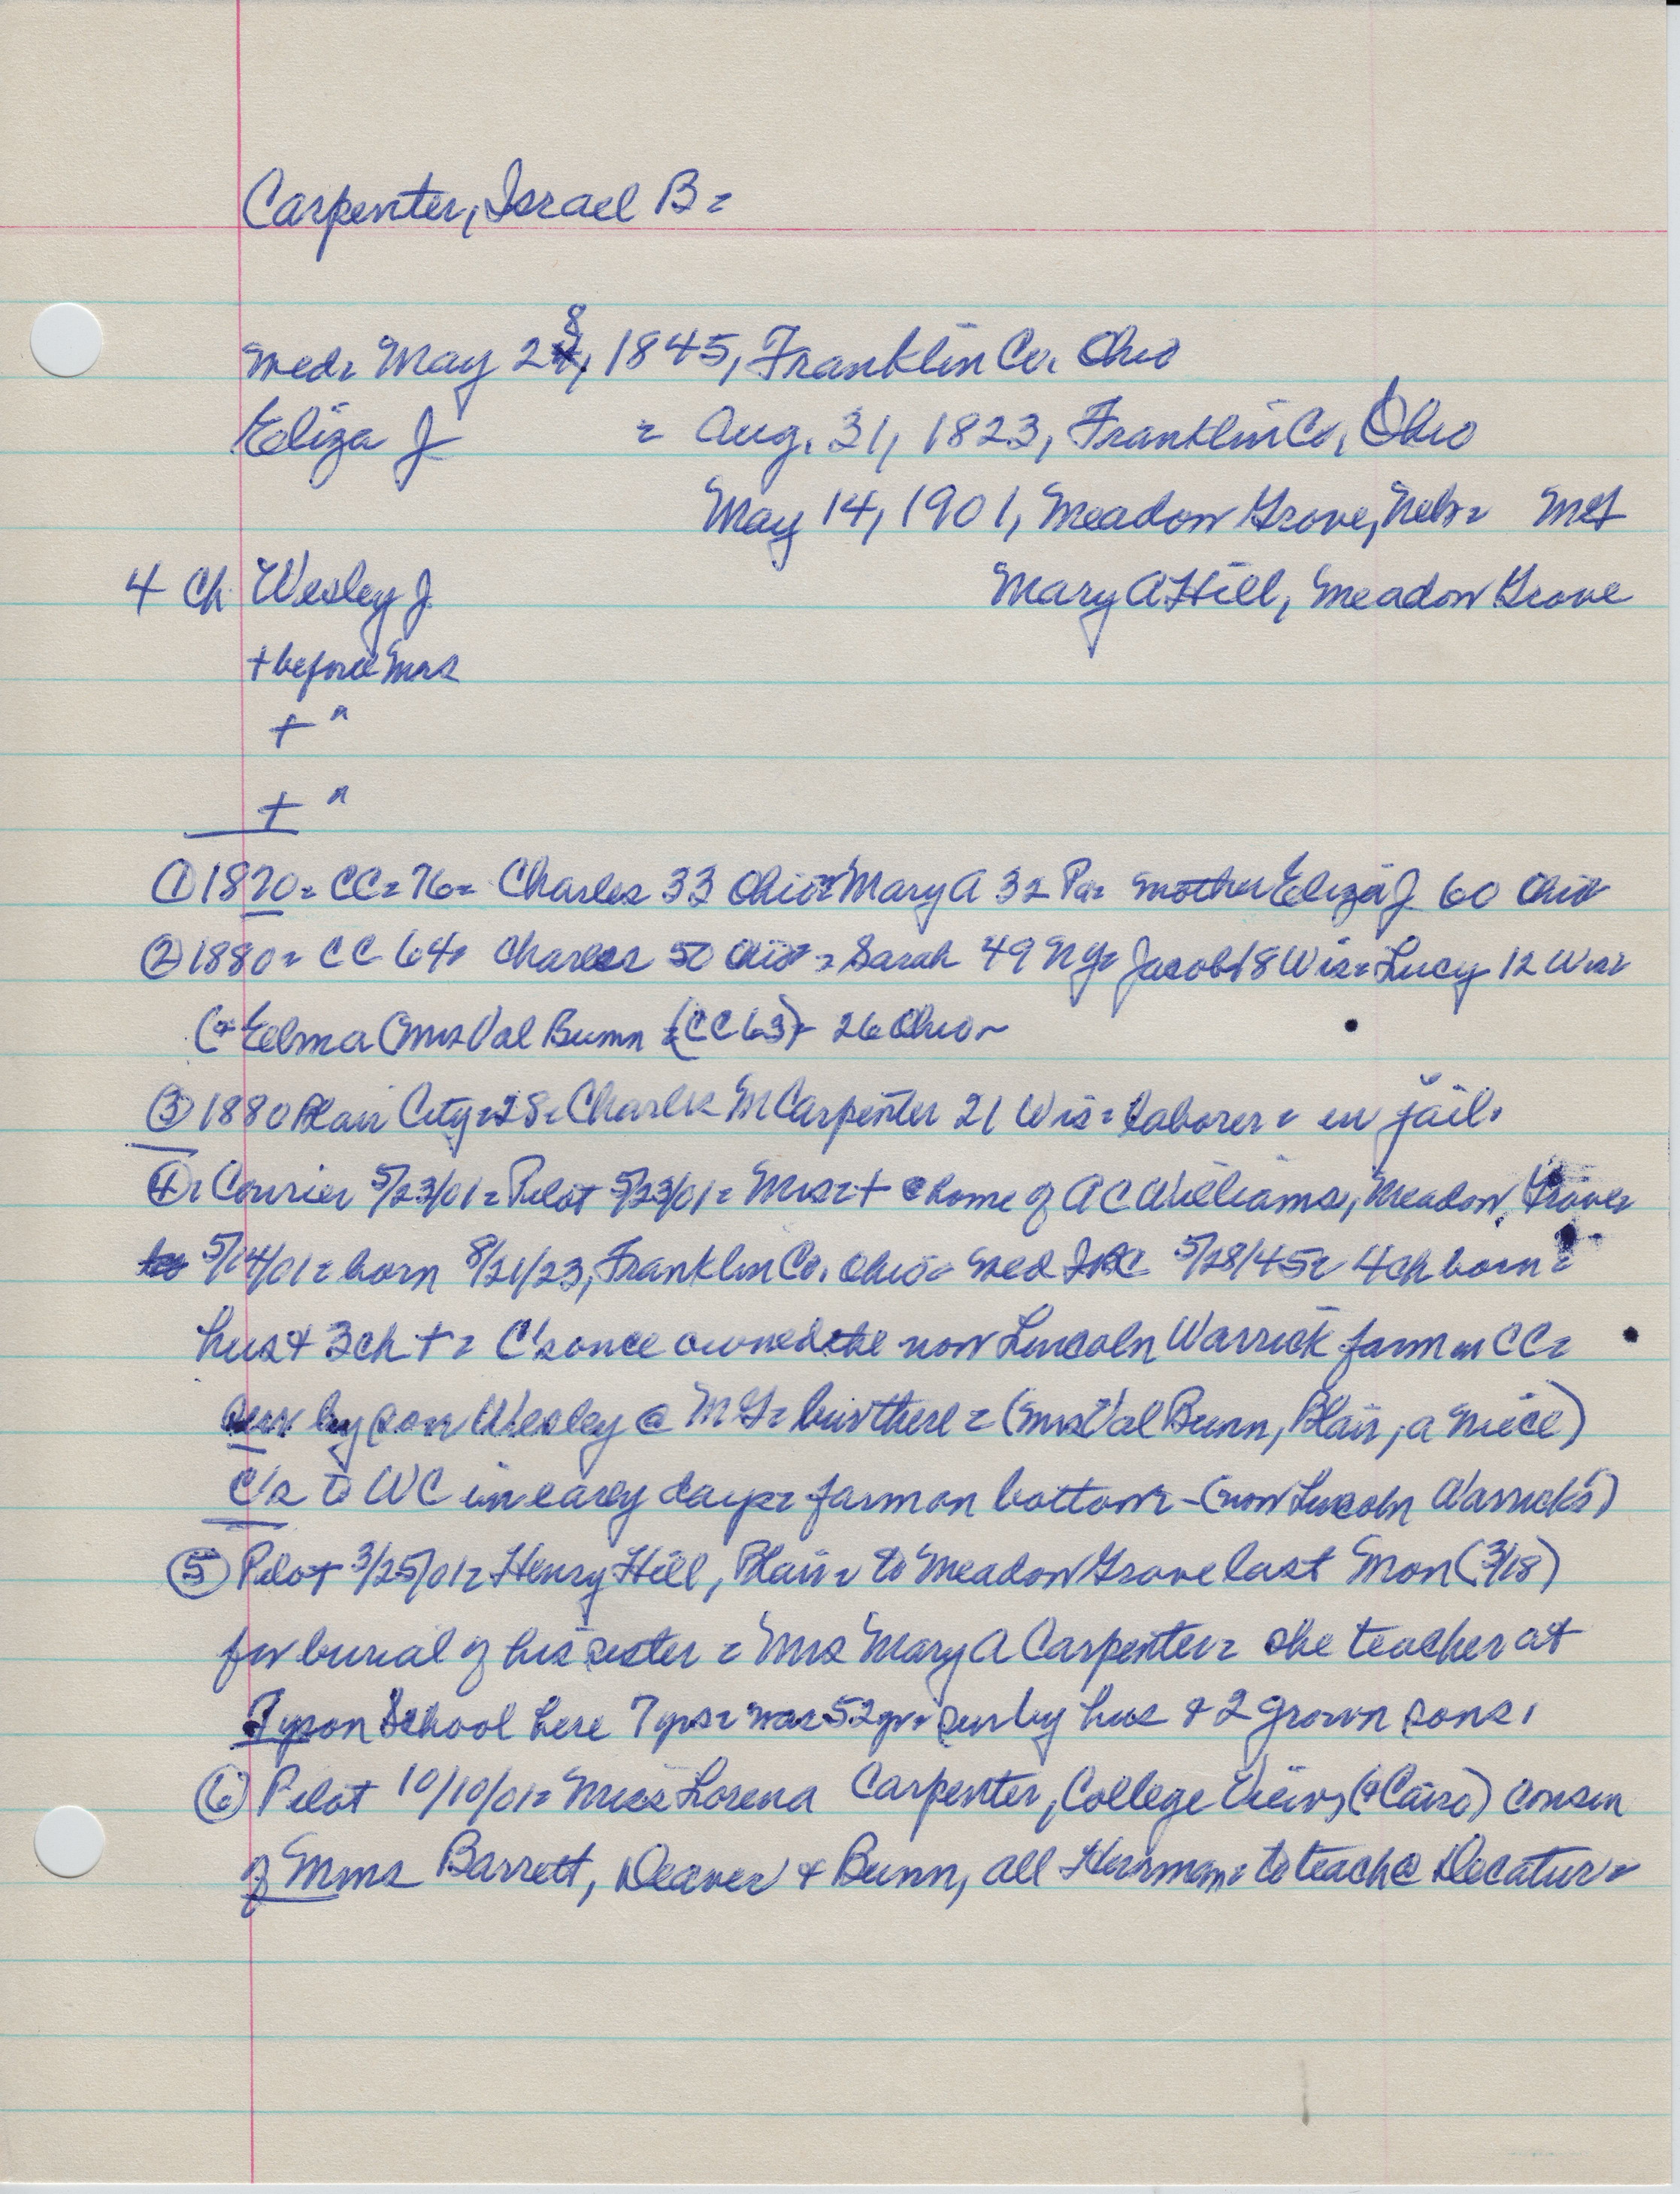 Carpenter, Israel B =
8
Med= May 28, 1845, Franklin Co. Ohio
Eliza J = Aug. 31, 1823, Franklin Co, Ohio
May 14, 1901, Meadow Grove, Neb=
4 Ch Wesley J. Mary A Hill, Meadow Grove
+ before Mrs
+ "
+ "
① 1870= CC= 76= Charles 33 Ohio= Mary A 32 Pa= mother Eliza J 60 Ohio
② 1880= CC 64= Charles 50 Ohio = Sarah 49 NY= Jacob 18 Wis= Lucy 12 Wis=
(= Elma (Mrs Val Bunn =(CC 63)= 26 Ohio=
③ 1880 Blair City=28= Charles M Carpenter 21 Wis= laborer= in jail.
④= Courier 5/23/01= Pilot 5/23/01= Mrs=+ @ home of A C Williams, Meadow Grove=
5/14/01= born 8/21/23, Franklin Co. Ohio= Med IBC 5/28/45= 4 ch born=
hus + 3 ch += C's once owned the now Lincoln Warrick farm in CC=
sur by son Wesley @ MG= bur there = (Mrs Val Bunn, Blair, a niece)
C's to WC in early days= farm on bottom - (now Lincoln Warrick's)
⑤ Pilot 3/25/01= Henry Hill, Blair= to Meadow Grove last Mon (3/18)
for burial of his sister = Mrs Mary A Carpenter= she teacher at
Tyson School here 7 yrs= was 52 yr= sur by hus & 2 grown sons.
⑥ Pilot 10/10/01= Miss Lorena Carpenter, College View, (& Cairo) cousin
of Mmes Barrett, Deaver & Bunn, all Herman= to teach @ Decatur=